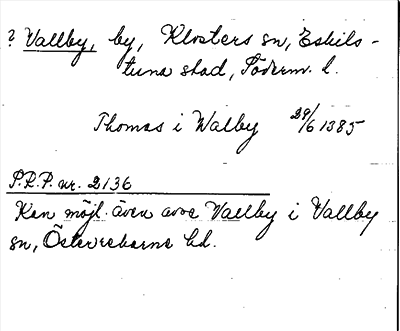 ? Vallby, by, Klosters sn, Eskils-
tuna stad, Söderm. l.
Thomas i Walby 29/6 1385
S.R.P. nr. 2136
Kan möjl. även avse Vallby i Vallby
sn, Österrekarne hd.